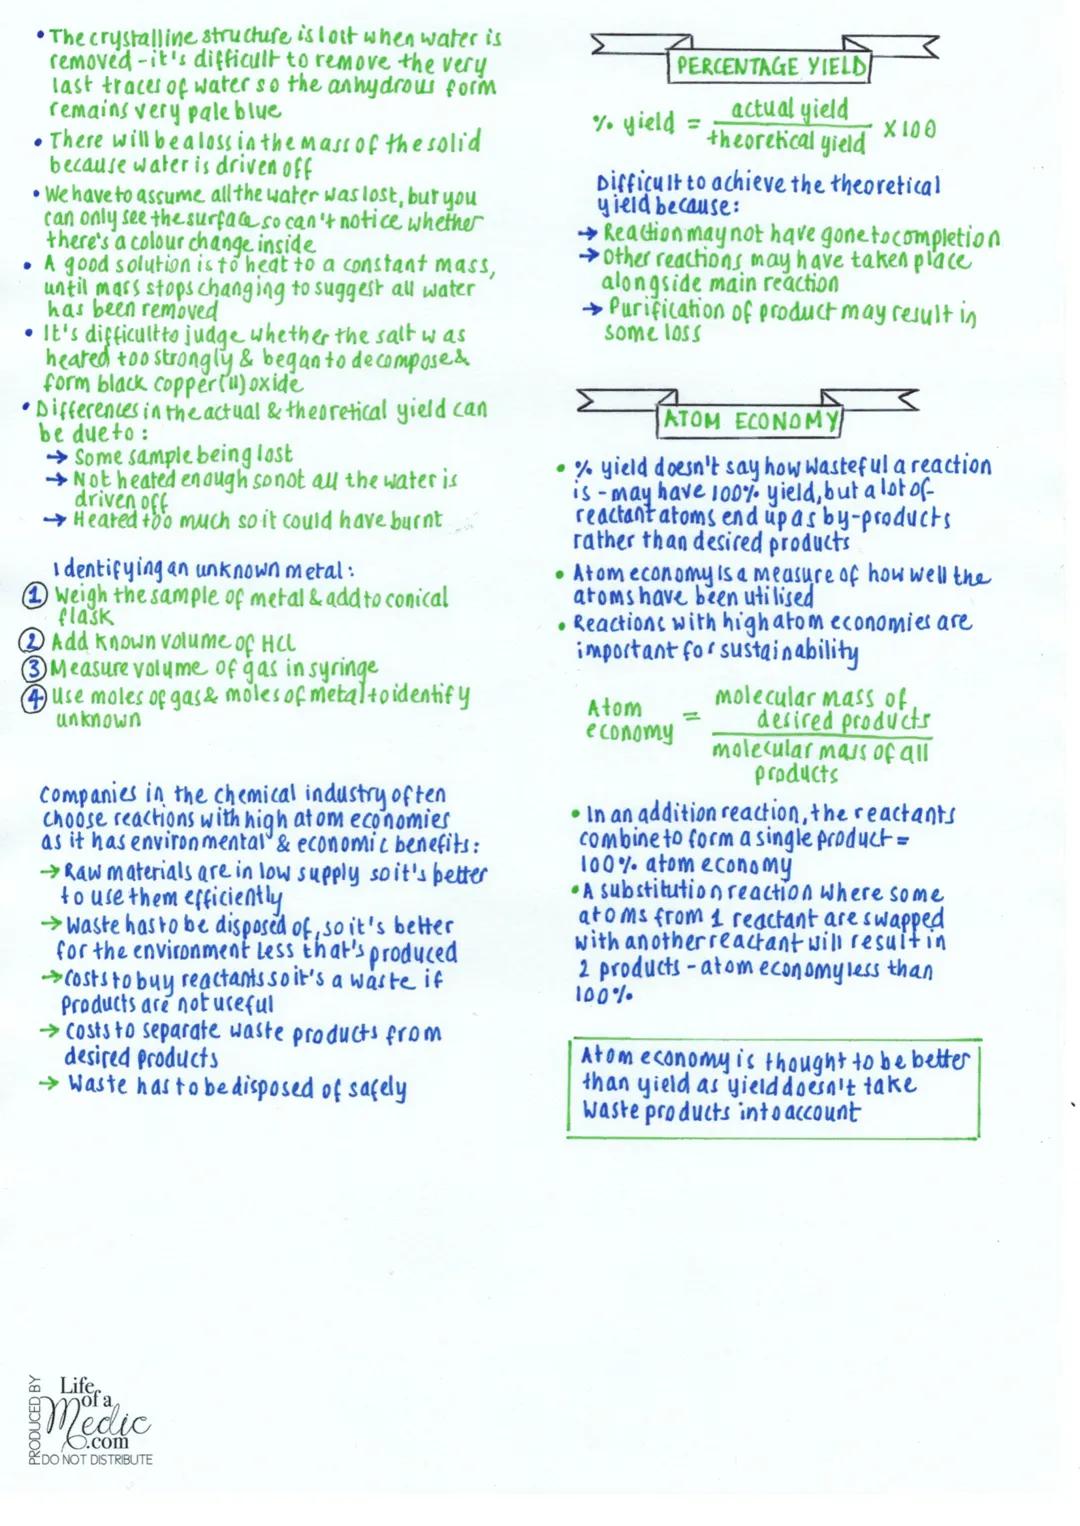 • The crystalline structure is lost when water is
removed - it's difficult to remove the very
last traces of water so the anhydrous form
remains very pale blue
• There will be a loss in the mass of the solid
because water is driven off
• We have to assume all the water was lost, but you
can only see the surface so can't notice whether
there's a colour change inside
• A good solution is to heat to a constant mass,
until mass stops changing to suggest all water
has been removed
• It's difficult to judge whether the salt was
heated too strongly & began to decompose &
form black copper(II) oxide
• Differences in the actual & theoretical yield can
be due to:
→ Some sample being lost
→ Not heated enough so not all the water is
driven off
→ Heated too much so it could have burnt
Identifying an unknown metal:
① Weigh the sample of metal & add to conical
flask
② Add known volume of HCl
③ Measure volume of gas in syringe
④ Use moles of gas & moles of metal to identify
unknown
Companies in the chemical industry often
choose reactions with high atom economies
as it has environmental & economic benefits:
→ Raw materials are in low supply so it's better
to use them efficiently
→ Waste has to be disposed of, so it's better
for the environment less that's produced
→ Costs to buy reactants so it's a waste if
products are not useful
→ Costs to separate waste products from
desired products
→ Waste has to be disposed of safely
PERCENTAGE YIELD
% yield = actual yield
theoretical yield × 100
Difficult to achieve the theoretical
yield because:
→ Reaction may not have gone to completion
→ Other reactions may have taken place
alongside main reaction
→ Purification of product may result in
some loss
ATOM ECONOMY
• % yield doesn't say how wasteful a reaction
is - may have 100% yield, but a lot of
reactant atoms end up as by-products
rather than desired products
• Atom economy is a measure of how well the
atoms have been utilised
• Reactions with high atom economies are
important for sustainability
Atom economy = molecular mass of
desired products
molecular mass of all
products
• In an addition reaction, the reactants
combine to form a single product =
100% atom economy
• A substitution reaction where some
atoms from 1 reactant are swapped
with another reactant will result in
2 products - atom economy less than
100%
Atom economy is thought to be better
than yield as yield doesn't take
waste products into account
PRODUCED BY
Life
of a
Medic
.com
DO NOT DISTRIBUTE